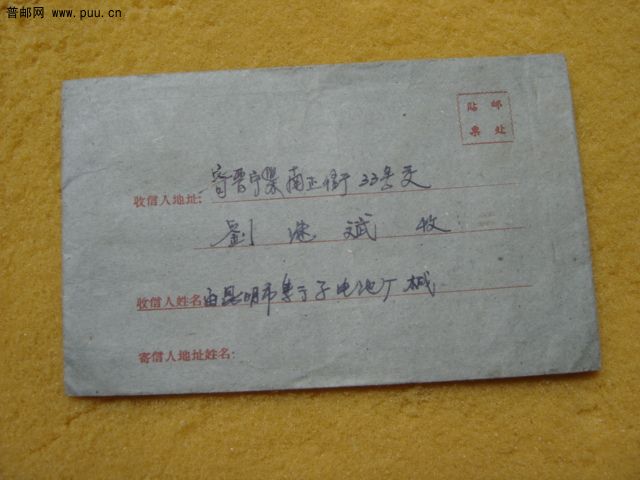 普邮网 www.puu.cn
貼 邮
票 处
寄晋宁县南正街33号交
收信人地址:
劉 斌 收
收信人姓名
由昆明市 子电池厂 械
寄信人地址姓名: